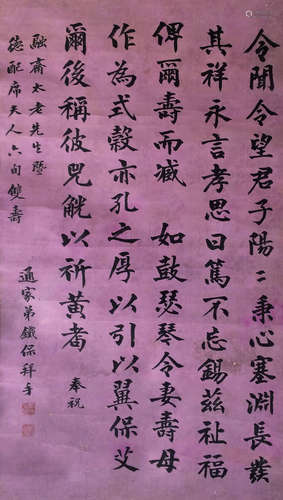 令聞令望君子陽二秉心塞淵長發
其祥永言孝思曰篤不忘錫茲祉福
俾爾壽而臧 如鼓瑟琴令妻壽母
作為式穀亦孔之厚以引以翼保艾
爾後稱彼兕觥以祈黃耇 奉祝
融齋太老先生暨
德配席夫人六旬雙壽
通家弟鐵保拜手